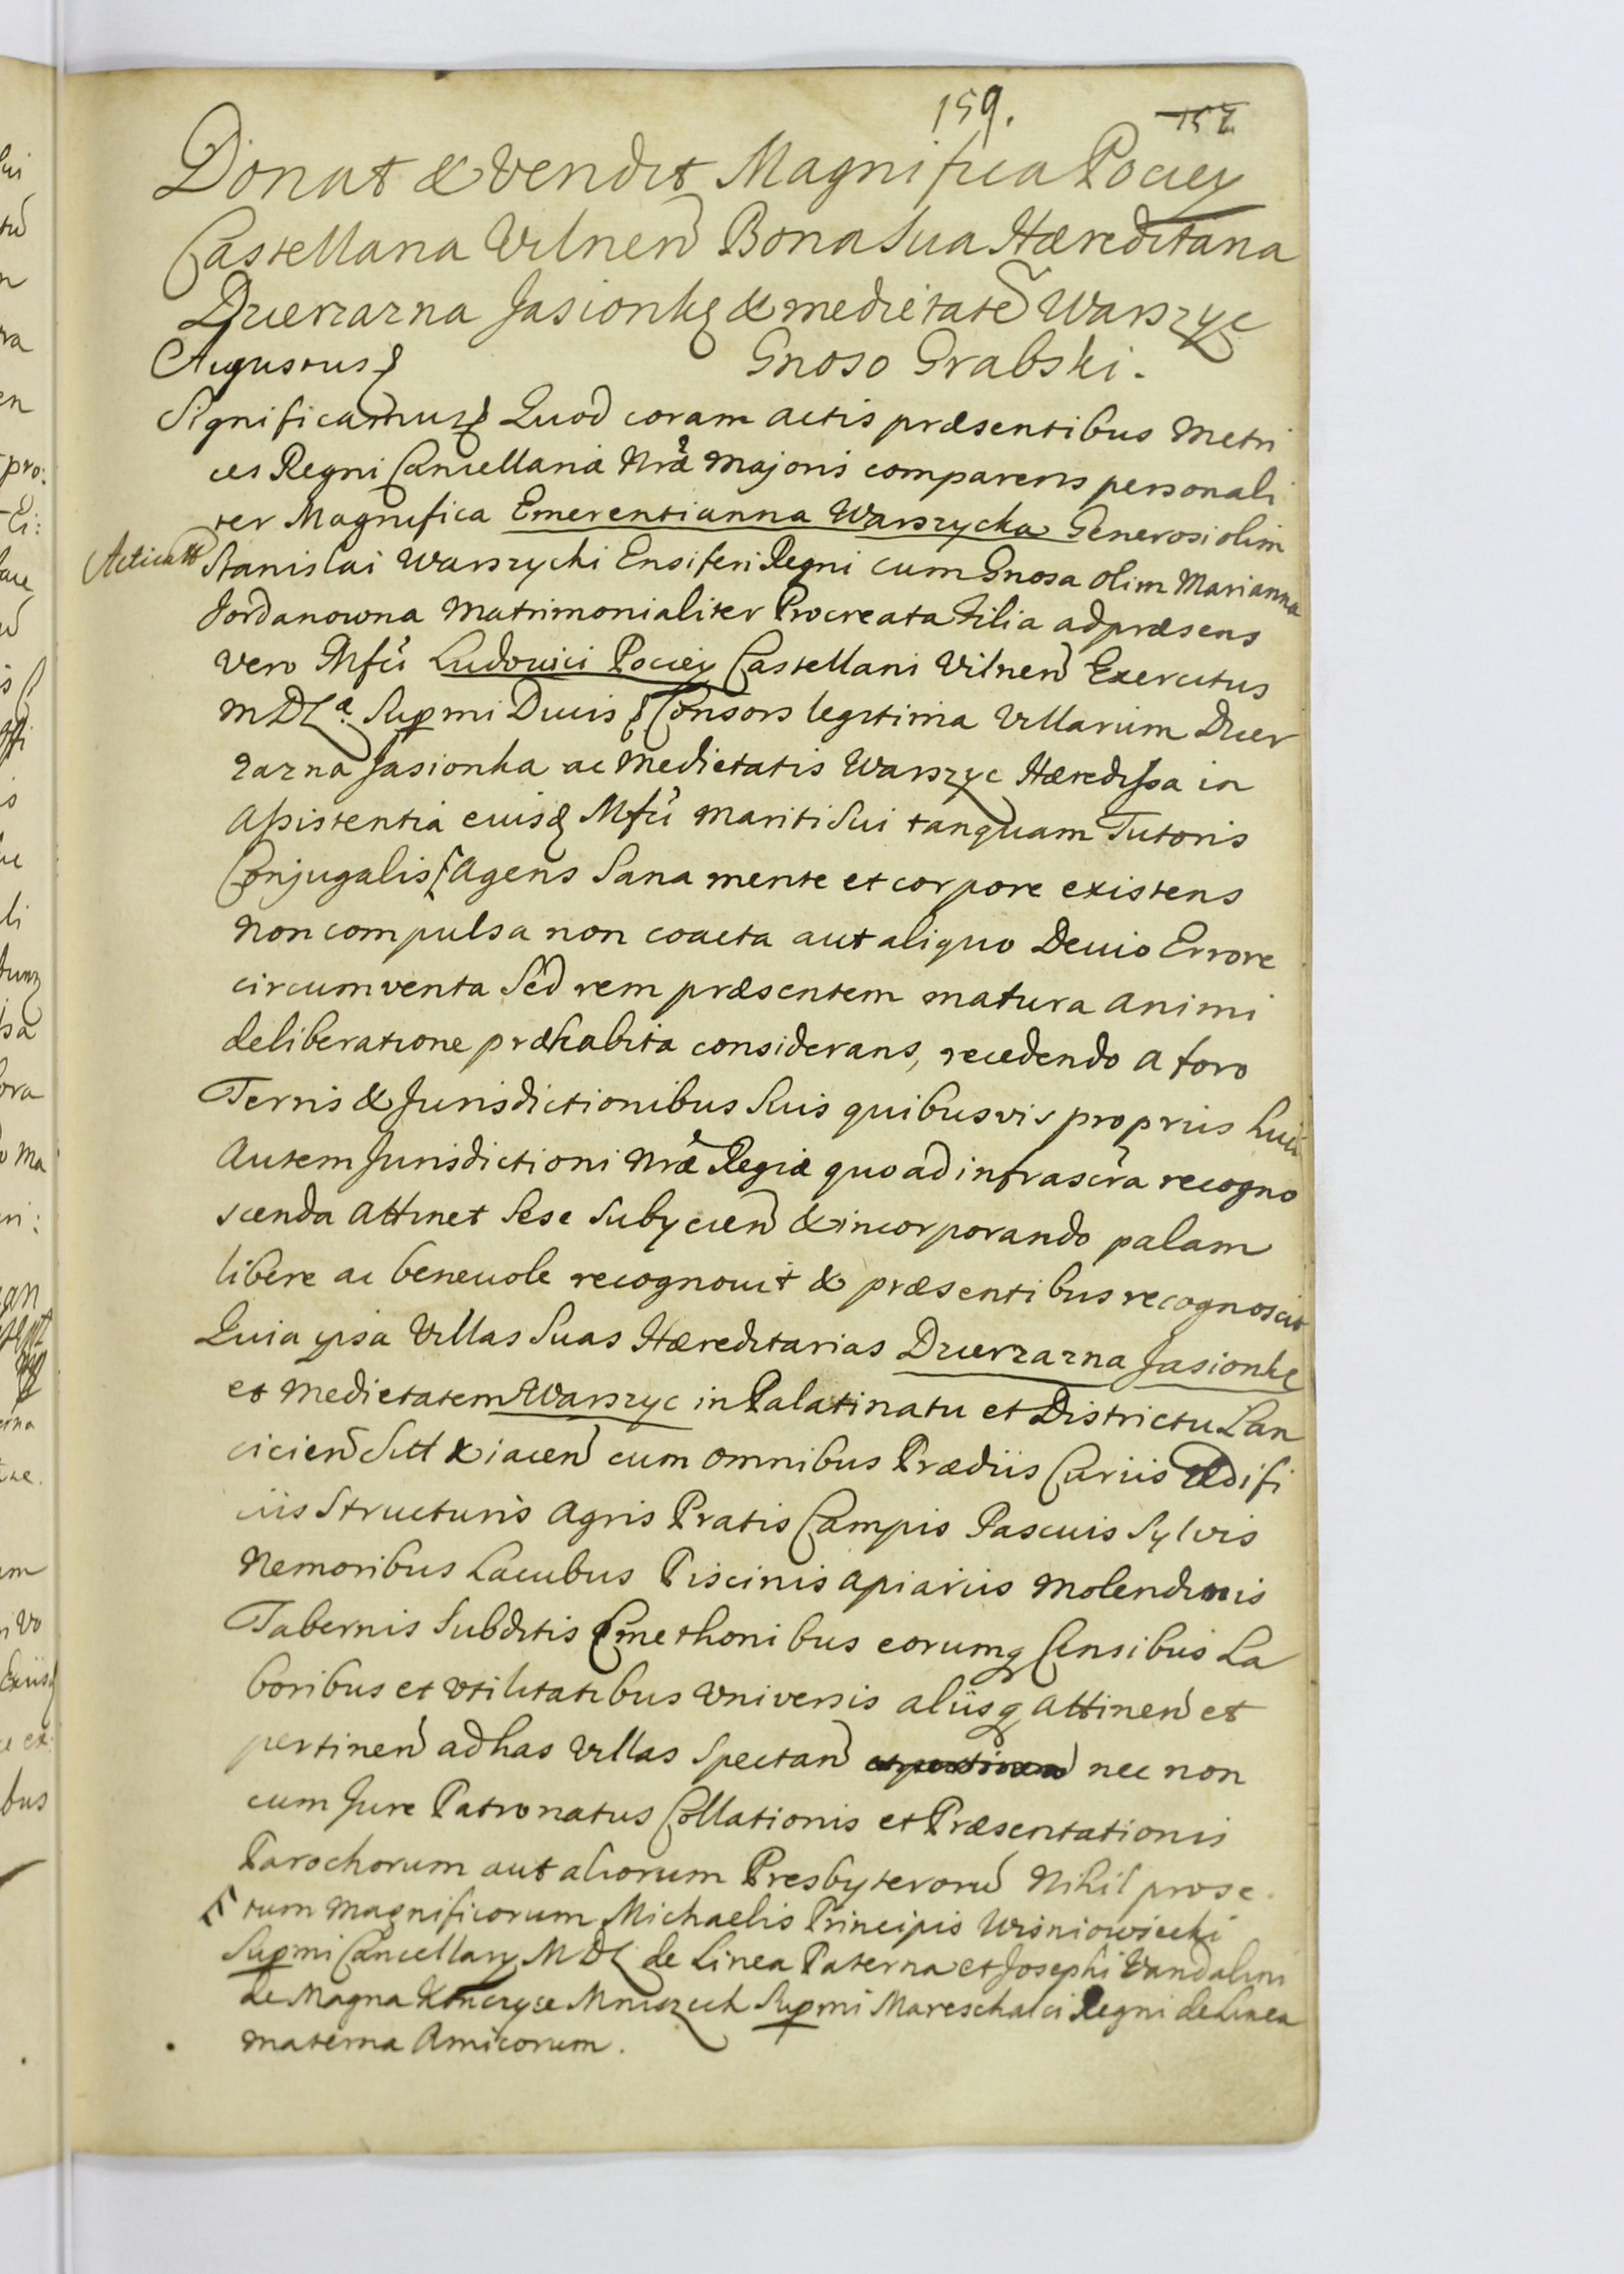 159. 157
Donat & Vendit Magnifica Pociey
Castellana Vilnen Bona Sua Hæreditaria
Dzierzazna Jasionkę & medietatē Warszyc
Augustus Gnoso Grabski.
Significamus Quod coram actis præsentibus Metri
ces Regni Cancellaria Nræ Majoris comparens personali
ter Magnifica Emerentianna Warszycka Generosi olim
Acticatt Stanislai Warszycki Ensiferi Regni cum Gnosa olim Marianna
Jordanowna Matrimonialiter Procreata Filia ad præsens
vero Mfci Ludovici Pociey Castellani Vilnen Exercitus
MDL Supmi Ducis Consors legitima Villarum Dzier
zazna Jasionka ac Medietatis Warszyc Hæredissa in
Assistentia eiusq Mfci mariti Sui tanquam Tutoris
Conjugalis Agens Sana mente et corpore existens
non compulsa non coacta aut aliquo Devio Errore
circumventa Sed rem præsentem matura animi
deliberatione præhabita considerans, recedendo a foro
Terris & Jurisdictionibus Suis quibusvis propriis huic
Autem Jurisdictioni Nræ Regiæ quo ad infrascra recogno
scenda Attinet Sese Subycien & incorporando palam
libere ac benevole recognovit & præsentibus recognoscit
Quia ipsa Villas Suas Hæreditarias Dzierzazna Jasionkę
et Medietatem Warszyc in Palatinatu et Districtu Lan
cicien Sitt & iacen cum omnibus Prædiis Curiis Ædifi
ciis Structuris Agris Pratis Campis Pascuis Sylvis
Nemoribus Lacubus Piscinis Apiariis Molendinis
Tabernis Subditis Cmethonibus eorumq Censibus La
boribus et Vtilitatibus Vniversis aliisq Attinen et
pertinen ad has Villas Spectan et pertinen nec non
cum Jure Patronatus Collationis et Præsentationis
Parochorum aut aliorum Presbyterorū Nihil pro se
tum Magnificorum Michaelis Principis Wisniowiecki
Supmi Cancellary MDL de Linea Paterna et Josephi Vandalini
de Magna Konczyce Mniszech Supmi Mareschalci Regni de Linea
materna Amicorum.